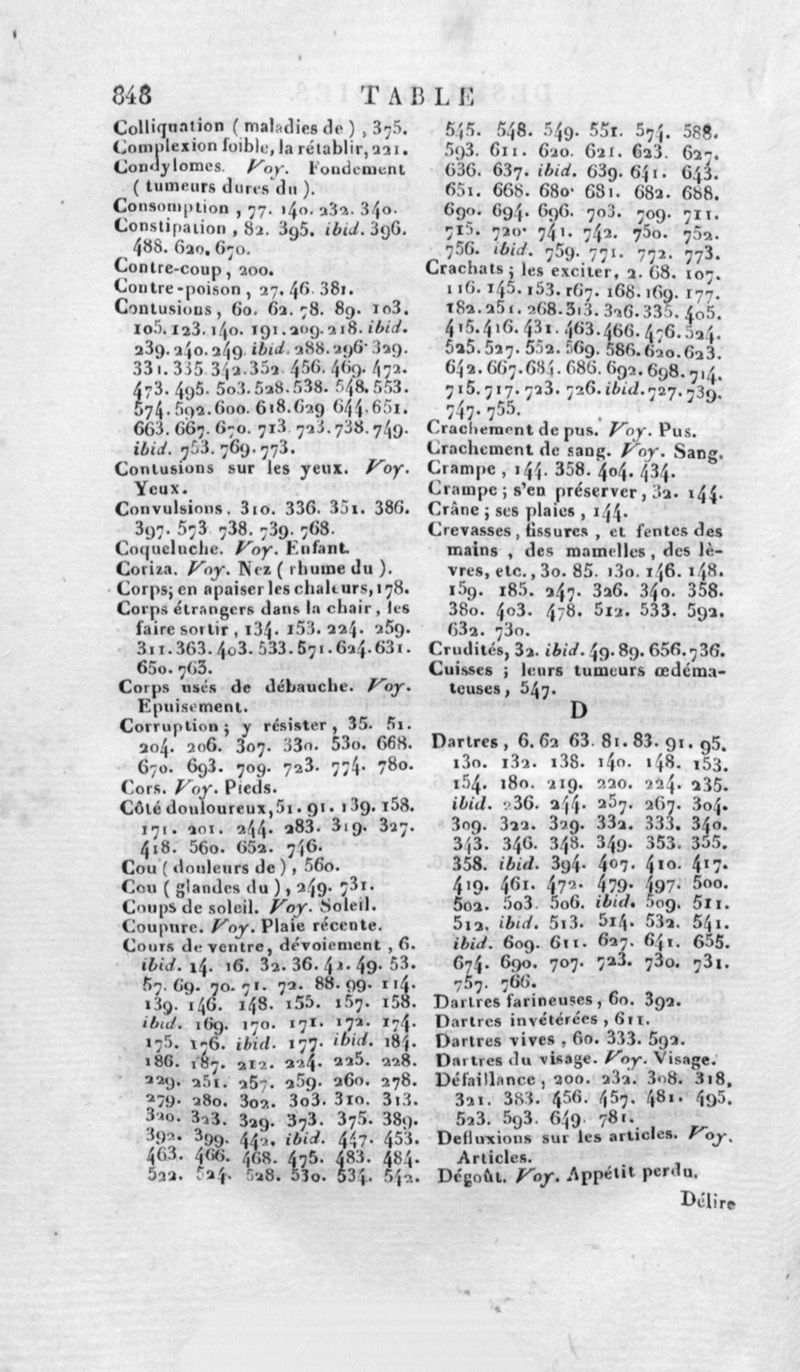 848 TABLE
Colliquation ( maladies de ) , 375.
Complexion foible, la rétablir, 221.
Condylomes. Voy. Fondement
( tumeurs dures du ).
Consomption , 77. 140. 232. 340.
Constipation , 82. 395. ibid. 396.
488. 620. 670.
Contre-coup , 200.
Contre-poison , 27. 46. 381.
Contusions, 60. 62. 78. 89. 103.
105. 123. 140. 191. 209. 218. ibid.
239. 240. 249. ibid. 288. 296. 329.
331. 335. 342. 352. 456. 469. 472.
473. 495. 503. 528. 538. 548. 553.
574. 592. 600. 618. 629 644. 651.
663. 667. 670. 713. 723. 738. 749.
ibid. 753. 769. 773.
Contusions sur les yeux. Voy.
Yeux.
Convulsions. 310. 336. 351. 386.
397. 573 738. 739. 768.
Coqueluche. Voy. Enfant.
Coriza. Voy. Nez ( rhume du ).
Corps; en apaiser les chaleurs, 178.
Corps étrangers dans la chair, les
faire sortir , 134. 153. 224. 259.
311. 363. 403. 533. 571. 624. 631.
650. 763.
Corps usés de débauche. Voy.
Epuisement.
Corruption ; y résister , 35. 51.
204. 206. 307. 330. 530. 668.
670. 693. 709. 723. 774. 780.
Cors. Voy. Pieds.
Côté douloureux, 51. 91. 139. 158.
171. 201. 244. 283. 319. 327.
418. 560. 652. 746.
Cou ( douleurs de ) , 560.
Cou ( glandes du ) , 249. 731.
Coups de soleil. Voy. Soleil.
Coupure. Voy. Plaie récente.
Cours de ventre, dévoiement , 6.
ibid. 14. 16. 32. 36. 42. 49. 53.
67. 69. 70. 71. 72. 88. 99. 114.
139. 146. 148. 155. 157. 158.
ibid. 169. 170. 171. 172. 174.
175. 176. ibid. 177. ibid. 184.
186. 187. 212. 224. 225. 228.
229. 251. 257. 259. 260. 278.
279. 280. 302. 303. 310. 313.
320. 323. 329. 373. 375. 389.
392. 399. 442. ibid. 447. 453.
463. 466. 468. 475. 483. 484.
522. 524. 528. 530. 534. 542.
545. 548. 549. 551. 574. 588.
593. 611. 620. 621. 623. 627.
636. 637. ibid. 639. 641. 643.
651. 668. 680. 681. 682. 688.
690. 694. 696. 703. 709. 711.
715. 720. 741. 742. 750. 752.
756. ibid. 759. 771. 772. 773.
Crachats ; les exciter, 2. 68. 107.
116. 145. 153. 167. 168. 169. 177.
182. 251. 268. 313. 326. 335. 405.
415. 416. 431. 463. 466. 476. 524.
525. 527. 552. 569. 586. 620. 623.
642. 667. 684. 686. 692. 698. 714.
715. 717. 723. 726. ibid. 727. 739.
747. 755.
Crachement de pus. Voy. Pus.
Crachement de sang. Voy. Sang.
Crampe , 144. 358. 404. 434.
Crampe ; s'en préserver, 32. 144.
Crâne ; ses plaies , 144.
Crevasses , fissures , et fentes des
mains , des mamelles , des lè-
vres, etc. , 30. 85. 130. 146. 148.
159. 185. 247. 326. 340. 358.
380. 403. 478. 512. 533. 592.
632. 730.
Crudités, 32. ibid. 49. 89. 656. 736.
Cuisses ; leurs tumeurs œdéma-
teuses , 547.
D
Dartres , 6. 62 63. 81. 83. 91. 95.
130. 132. 138. 140. 148. 153.
154. 180. 219. 220. 224. 235.
ibid. 236. 244. 257. 267. 304.
309. 322. 329. 332. 333. 340.
343. 346. 348. 349. 353. 355.
358. ibid. 394. 407. 410. 417.
419. 461. 472. 479. 497. 500.
502. 503. 506. ibid. 509. 511.
512. ibid. 513. 514. 532. 541.
ibid. 609. 611. 627. 641. 655.
674. 690. 707. 723. 730. 731.
757. 766.
Dartres farineuses , 60. 392.
Dartres invétérées , 611.
Dartres vives , 60. 333. 592.
Dartres du visage. Voy. Visage.
Défaillance , 200. 232. 308. 318.
321. 383. 456. 457. 481. 495.
523. 593. 649. 781.
Defluxions sur les articles. Voy.
Articles.
Dégoût. Voy. Appétit perdu.
Délire